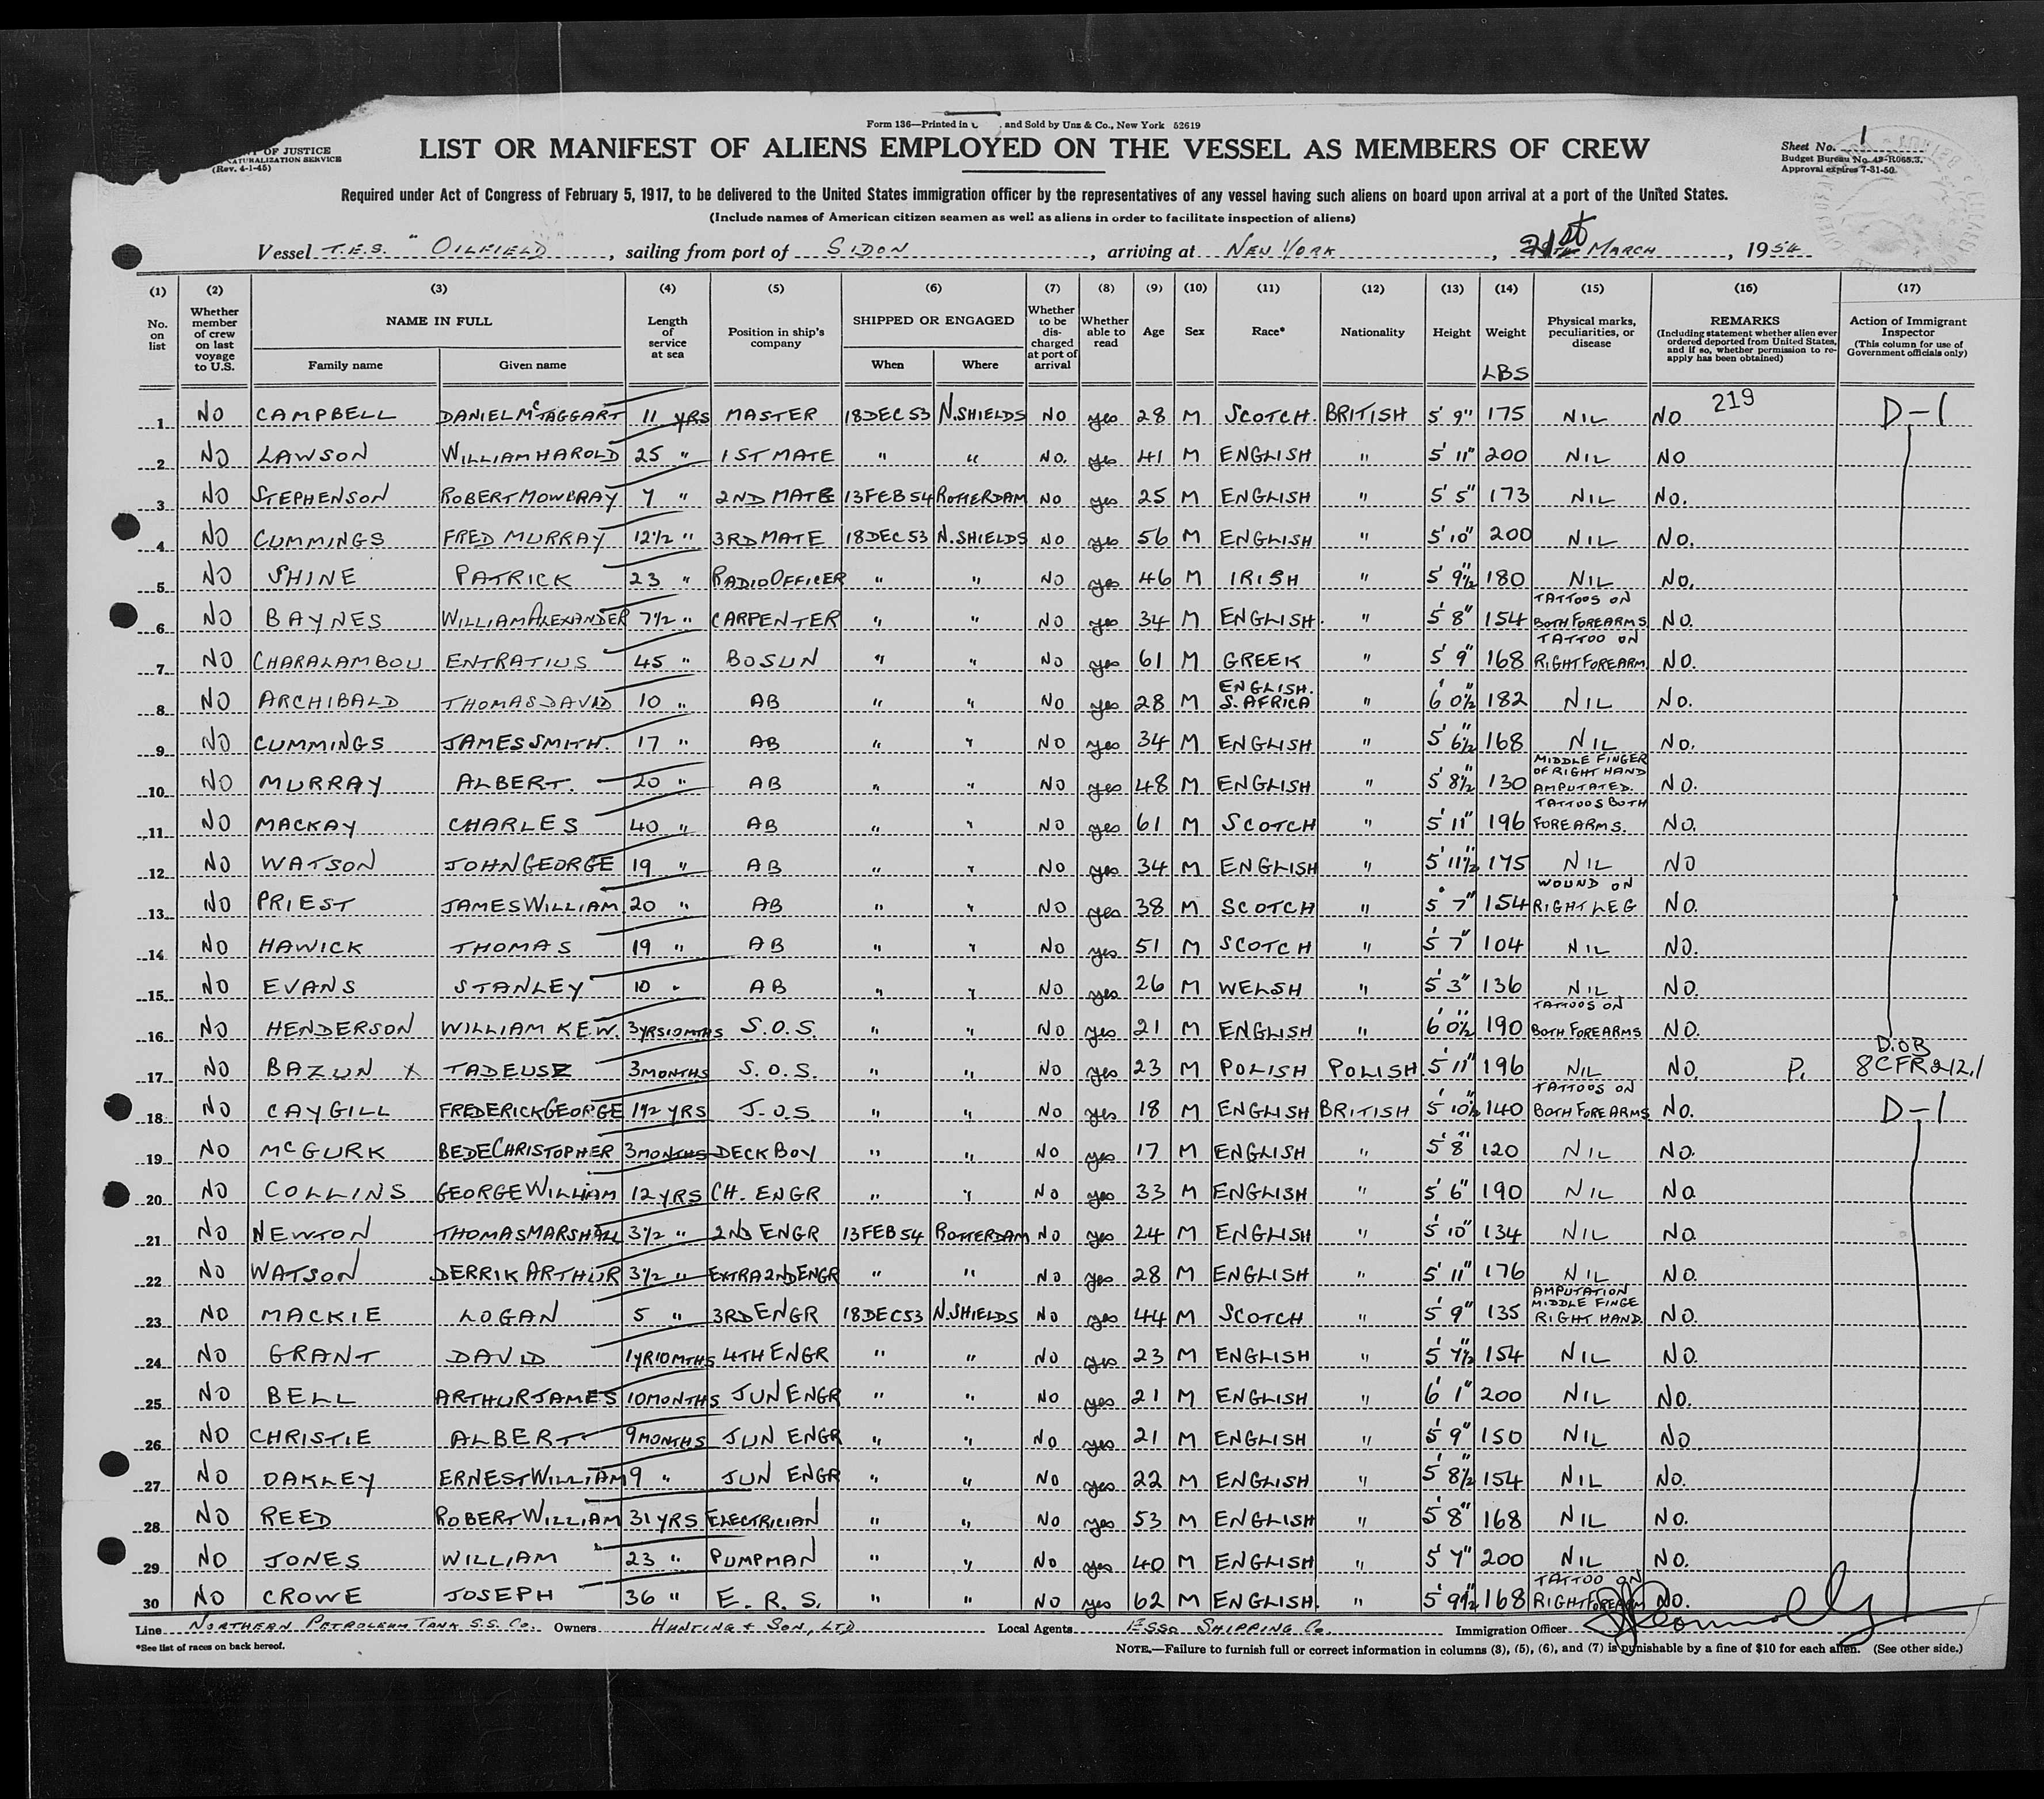 Form 136—Printed in , and Sold by Unz & Co., New York 52619
OF JUSTICE
NATURALIZATION SERVICE
(Rev. 4-1-45)
LIST OR MANIFEST OF ALIENS EMPLOYED ON THE VESSEL AS MEMBERS OF CREW
Sheet No. 1
Budget Bureau No. 43-R065.3.
Approval expires 7-31-50.
Required under Act of Congress of February 5, 1917, to be delivered to the United States immigration officer by the representatives of any vessel having such aliens on board upon arrival at a port of the United States.
(Include names of American citizen seamen as well as aliens in order to facilitate inspection of aliens)
Vessel T.E.S. "OILFIELD, sailing from port of SIDON, arriving at NEW YORK, 21st MARCH, 1954
(1) (2) (3) (4) (5) (6) (7) (8) (9) (10) (11) (12) (13) (14) (15) (16) (17)
No. on list Whether member of crew on last voyage to U.S. NAME IN FULL Family name Given name Length of service at sea Position in ship's company SHIPPED OR ENGAGED When Where Whether to be discharged at port of arrival Whether able to read Age Sex Race* Nationality Height Weight LBS Physical marks, peculiarities, or disease REMARKS (Including statement whether alien ever ordered deported from United States, and if so, whether permission to reapply has been obtained) Action of Immigrant Inspector (This column for use of Government officials only)
1 NO CAMPBELL DANIEL McTAGGART 11 YRS MASTER 18 DEC 53 N. SHIELDS NO yes 28 M SCOTCH. BRITISH 5' 9" 175 NIL NO 219 D-1
2 NO LAWSON WILLIAM HAROLD 25 " 1ST MATE " " NO. yes 41 M ENGLISH " 5' 11" 200 NIL NO
3 NO STEPHENSON ROBERT MOWBRAY 7 " 2ND MATE 13 FEB 54 ROTTERDAM NO yes 25 M ENGLISH " 5' 5" 173 NIL NO.
4 NO CUMMINGS FRED MURRAY 12½ " 3RD MATE 18 DEC 53 N. SHIELDS NO yes 56 M ENGLISH " 5' 10" 200 NIL NO.
5 NO SHINE PATRICK 23 " RADIO OFFICER " " NO yes 46 M IRISH " 5' 9½" 180 NIL NO.
6 NO BAYNES WILLIAM ALEXANDER 7½ " CARPENTER " " NO yes 34 M ENGLISH. " 5' 8" 154 TATTOOS ON BOTH FOREARMS NO.
7 NO CHARALAMBOU ENTRATIUS 45 " BOSUN " " NO yes 61 M GREEK " 5' 9" 168 TATTOO ON RIGHT FOREARM NO.
8 NO ARCHIBALD THOMAS DAVID 10 " AB " " NO yes 28 M ENGLISH. S. AFRICA " 6' 0½" 182 NIL NO.
9 NO CUMMINGS JAMES SMITH. 17 " AB " " NO yes 34 M ENGLISH " 5' 6½" 168 NIL NO.
10 NO MURRAY ALBERT. 20 " AB " " NO yes 48 M ENGLISH " 5' 8½" 130 MIDDLE FINGER OF RIGHT HAND AMPUTATED. NO.
11 NO MACKAY CHARLES 40 " AB " " NO yes 61 M SCOTCH " 5' 11" 196 TATTOOS BOTH FOREARMS. NO.
12 NO WATSON JOHN GEORGE 19 " AB " " NO yes 34 M ENGLISH " 5' 11½" 175 NIL NO
13 NO PRIEST JAMES WILLIAM 20 " AB " " NO yes 38 M SCOTCH " 5' 7" 154 WOUND ON RIGHT LEG NO.
14 NO HAWICK THOMAS 19 " AB " " NO yes 51 M SCOTCH " 5' 7" 104 NIL NO.
15 NO EVANS STANLEY 10 " AB " " NO yes 26 M WELSH " 5' 3" 136 NIL NO.
16 NO HENDERSON WILLIAM KEW. 3YRS10MTHS S.O.S. " " NO yes 21 M ENGLISH " 6' 0½" 190 TATTOOS ON BOTH FOREARMS NO.
17 NO BAZUN X TADEUSZ 3 MONTHS S.O.S. " " NO yes 23 M POLISH POLISH. 5' 11" 196 NIL NO. P. D.O.B 8CFR212.1
18 NO CAYGILL FREDERICK GEORGE 1½ YRS J.O.S. " " NO yes 18 M ENGLISH BRITISH 5' 10½" 140 TATTOOS ON BOTH FOREARMS NO. D-1
19 NO McGURK BEDE CHRISTOPHER 3 MONTHS DECK BOY " " NO yes 17 M ENGLISH " 5' 8" 120 NIL NO.
20 NO COLLINS GEORGE WILLIAM 12 YRS CH. ENGR " " NO yes 33 M ENGLISH " 5' 6" 190 NIL NO
21 NO NEWTON THOMAS MARSHALL 3½ " 2ND ENGR 13 FEB 54 ROTTERDAM NO yes 24 M ENGLISH " 5' 10" 134 NIL NO.
22 NO WATSON DERRIK ARTHUR 3½ " EXTRA 2ND ENGR " " NO yes 28 M ENGLISH " 5' 11" 176 NIL NO.
23 NO MACKIE LOGAN 5 " 3RD ENGR 18 DEC 53 N. SHIELDS NO yes 44 M SCOTCH " 5' 9" 135 AMPUTATION MIDDLE FINGE RIGHT HAND. NO.
24 NO GRANT DAVID 1YR10MTHS 4TH ENGR " " NO yes 23 M ENGLISH " 5' 7½" 154 NIL NO.
25 NO BELL ARTHUR JAMES 10 MONTHS JUN ENGR " " NO yes 21 M ENGLISH " 6' 1" 200 NIL NO.
26 NO CHRISTIE ALBERT 9 MONTHS JUN ENGR " " NO yes 21 M ENGLISH " 5' 9" 150 NIL NO
27 NO OAKLEY ERNEST WILLIAM 9 " JUN ENGR " " NO yes 22 M ENGLISH " 5' 8½" 154 NIL NO.
28 NO REED ROBERT WILLIAM 31 YRS ELECTRICIAN " " NO yes 53 M ENGLISH " 5' 8" 168 NIL NO.
29 NO JONES WILLIAM 23 " PUMPMAN " " NO yes 40 M ENGLISH " 5' 7" 200 NIL NO.
30 NO CROWE JOSEPH 36 " E.R.S. " " NO yes 62 M ENGLISH. " 5' 9½" 168 TATTOO ON RIGHT FOREARM NO.
Line NORTHERN PETROLEUM TANK S.S. CO. Owners HUNTING & SON, LTD Local Agents ESSO SHIPPING Co. Immigration Officer
*See list of races on back hereof.
NOTE.—Failure to furnish full or correct information in columns (3), (5), (6), and (7) is punishable by a fine of $10 for each alien. (See other side.)